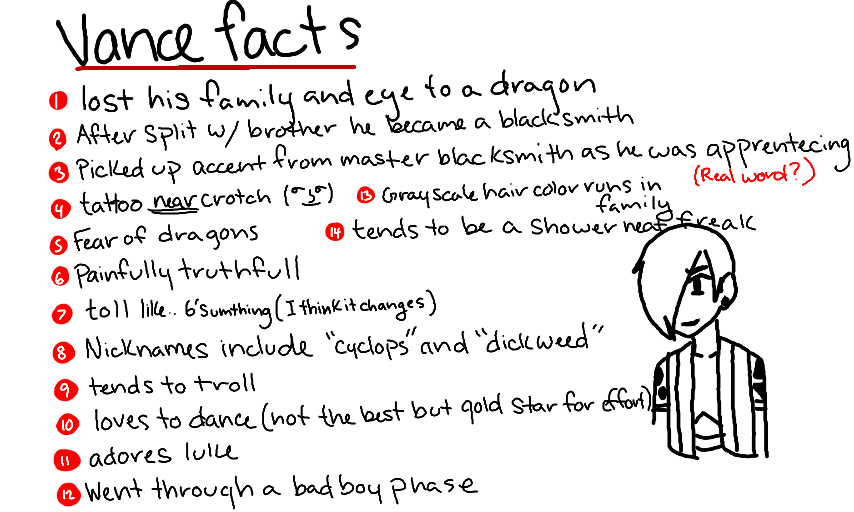 Vance facts
1 lost his family and eye to a dragon
2 After split w/ brother he became a blacksmith
3 Picked up accent from master blacksmith as he was apprentecing
(Real word?)
4 tattoo near crotch ( ͡° ͜ʖ ͡°)
13 Grayscale hair color runs in
family
5 Fear of dragons
14 tends to be a shower neat freak
6 Painfully truthfull
7 toll like.. 6'sumthing (I think it changes)
8 Nicknames include "cyclops" and "dickweed"
9 tends to troll
10 loves to dance (not the best but gold star for effort)
11 adores luke
12 Went through a bad boy phase